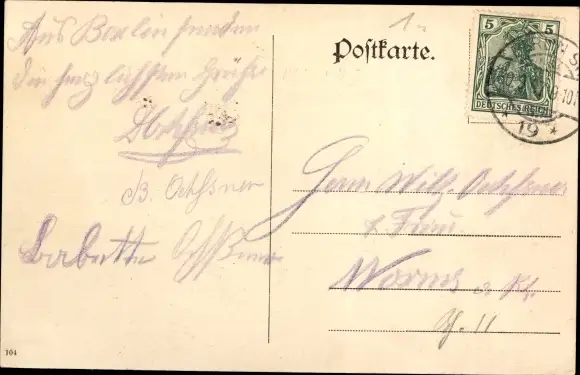 Aus Berlin senden
die herzlichsten Grüße
B. Ochsner
Babette Ochsner
104
Postkarte.
1
5 5
DEUTSCHES REICH
* 19 *
Herrn Wilh. Ochsner
& Frau
Worms a. Rh.